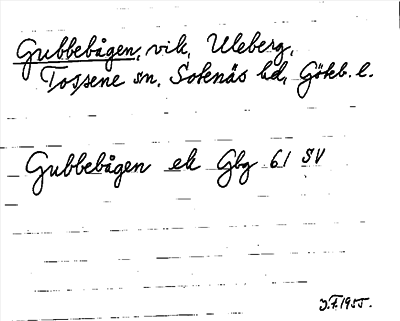 Gubbebågen, vik, Uleberg,
Tossene sn, Sotenäs hd, Göteb. l.
Gubbebågen ek Gbg 61 SV
J.F. 1955.